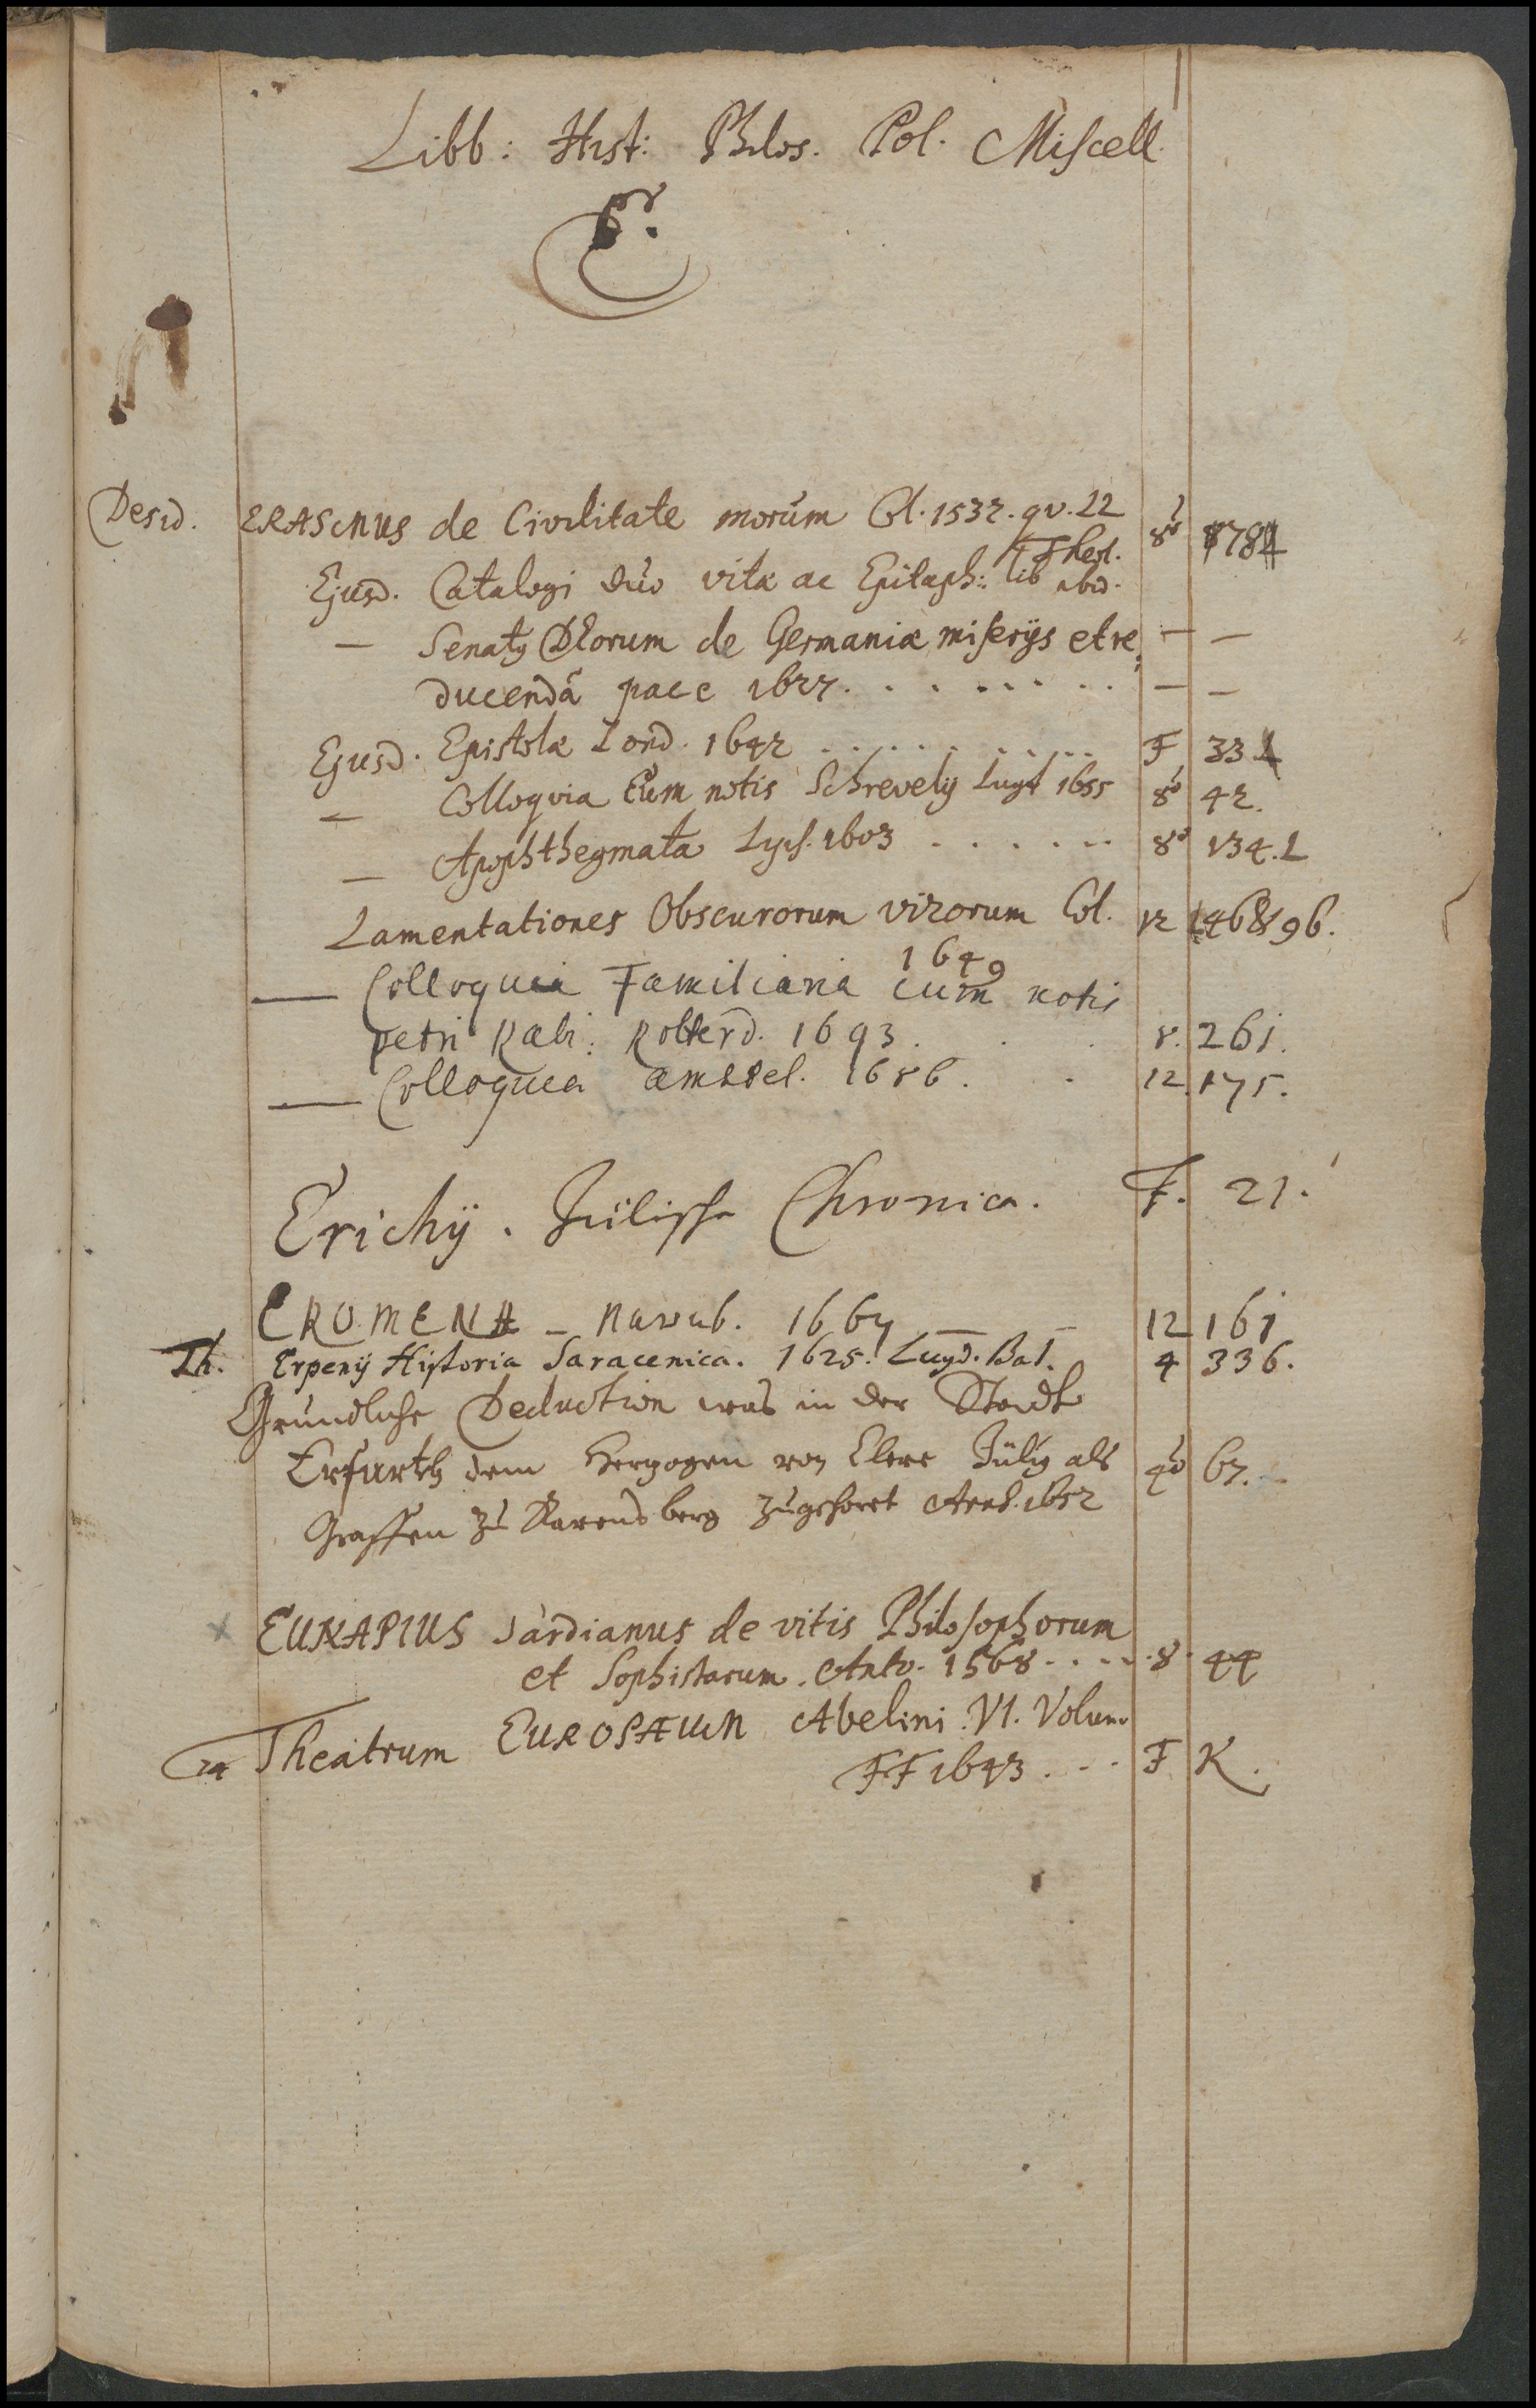 Libb: Hist: Philos. Pol. Miscell.
E.
Desid. ERASMUS de Civilitate morum Col. 1532. qv. 22 8º 784
Theol.
Ejusd. Catalogi duo vitæ ac Epitaph: lib ibid.
— Senatus Deorum de Germaniæ miserijs et re — —
ducendâ pace 1627. . . . . . . . . — —
Ejusd. Epistolæ Lond. 1642 . . . . . . . . . F 33
— Colloqvia Cum notis Schrevelij Lugd 1655 8º 42.
— Apophthegmata Lyps. 1603 . . . . . . 8º 134. L
Lamentationes Obscurorum virorum Col. 12 96.
1649
— Colloquia Familiaria cum notis
petri Rabi: Rotterd. 1693. . . 8. 261.
— Colloquia amstel. 1686. . 12. 175.
Erichij. Jülische Chronica. F. 21.
EROMENA – Nurnb. 1667 — — 12 161
Th. Erpenij Historia Saracenica. 1625. Lugd. Bat. 4 336.
Gründliche Deduction was in der Stadt
Erfurth dem Hertzogen von Cleve Jülig als 4º 67.
Graffen zu Ravensberg zugehöret 1652
EUNAPIUS Sardianus de vitis Philosophorum
et Sophistarum. Antv. 1568 . . . . 8. 44
Theatrum EUROPÆUM Abelini. VI. Volum
FF 1643 . . . F K.